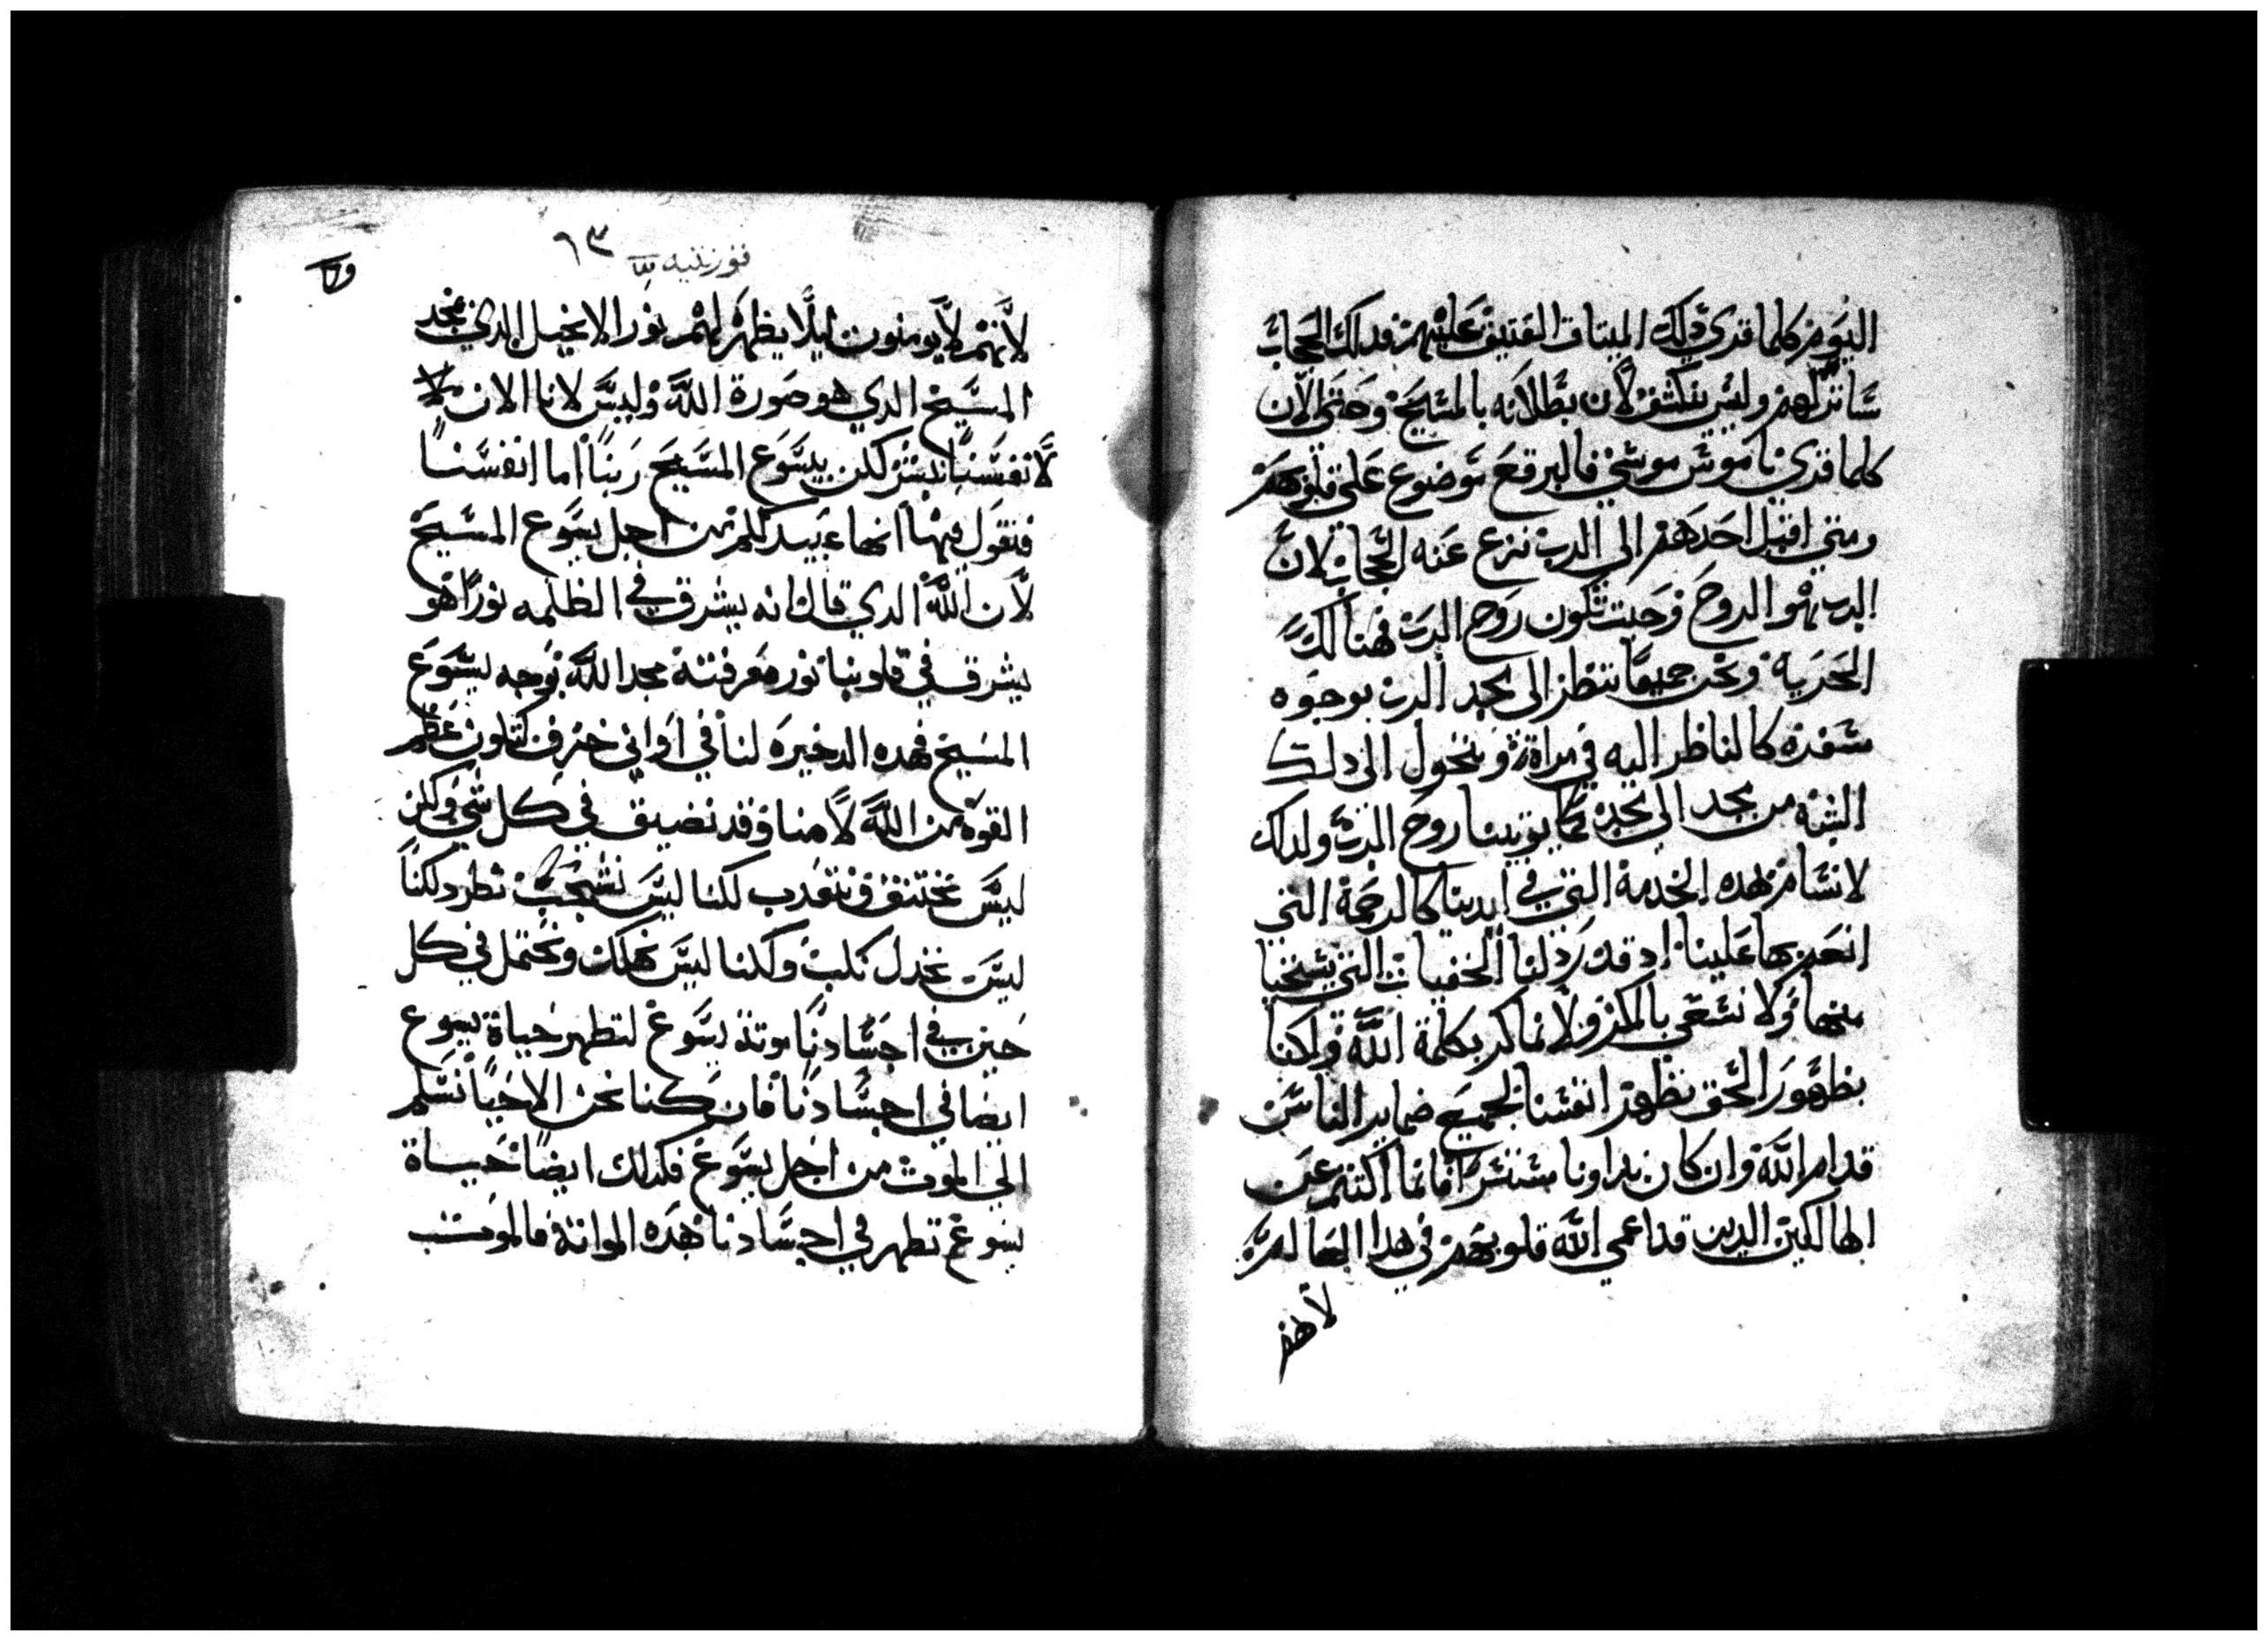 اليوم كلما قري ذلك الميتاق العتيق عليهم فدلك الحجاب
ساترلهم وليس ينكشف لان بطلانه بالمسيح وحتى الان
كلما قري ناموس موسي فالبرقع موضوع على قلوبهم
ومتي اقبل احدهم الي الرب نزع عنه الحجاب لان
الرب هو الروح وحيت تكون روح الرب فهنالك
الحرية ونحن جميعا ننظر الى مجد الرب بوجوه
سفره كالناظر اليه في مراة ونتحول الى دلك
الشبه من مجد الى مجد كما يوتينا روح الرب ولدلك
لا نسام هده الخدمة التي في ايدينا كالرحمة التي
انعم بها علينا اد قد ردلنا الخفيات التي يستحيا
منها ولا نسعى بالمكر ولا نماكر بكلمة الله ولكنا
بظهور الحق نظهر انفسنا لجميع ضماير الناس
قدام الله وان كان بداونا مستترا فانما اكتتم عن
الهالكين الدين قد اعمي الله قلوبهم في هدا العالم
لانهم
قورنتيه ٦٣
لانهم لا يومنون ليلا يظهر لهم نور الانجيل الدي لمجد
المسيح الدي هو صورة الله وليس لانا الان
لانفسنا نبشر لكن بيسوع المسيح ربنا اما انفسنا
فنقول فيها انها عبيد لكم من اجل يسوع المسيح
لان الله الدي قال انه يشرق في الظلمه نورا هو
يشرق في قلوبنا نور معرفتة مجد الله بوجه يسوع
المسيح فهده الدخيره لنا في اواني خزف لتكون عظم
القوه من الله لا منا وقد نضيق في كل شي ولكن
ليس نختنق ونتعدب لكنا ليس نشجب نطرد لكنا
ليس نخدل نلبت ولكنا ليس نهلك ونحتمل في كل
حين في اجسادنا موتة يسوع لتطهر حياة يسوع
ايضا في اجسادنا فان كنا نحن الاحيا نسلم
الي الموت من اجل يسوع فكدلك ايضا حياة
يسوع تطهر في اجسادنا هده المواتة فالموت